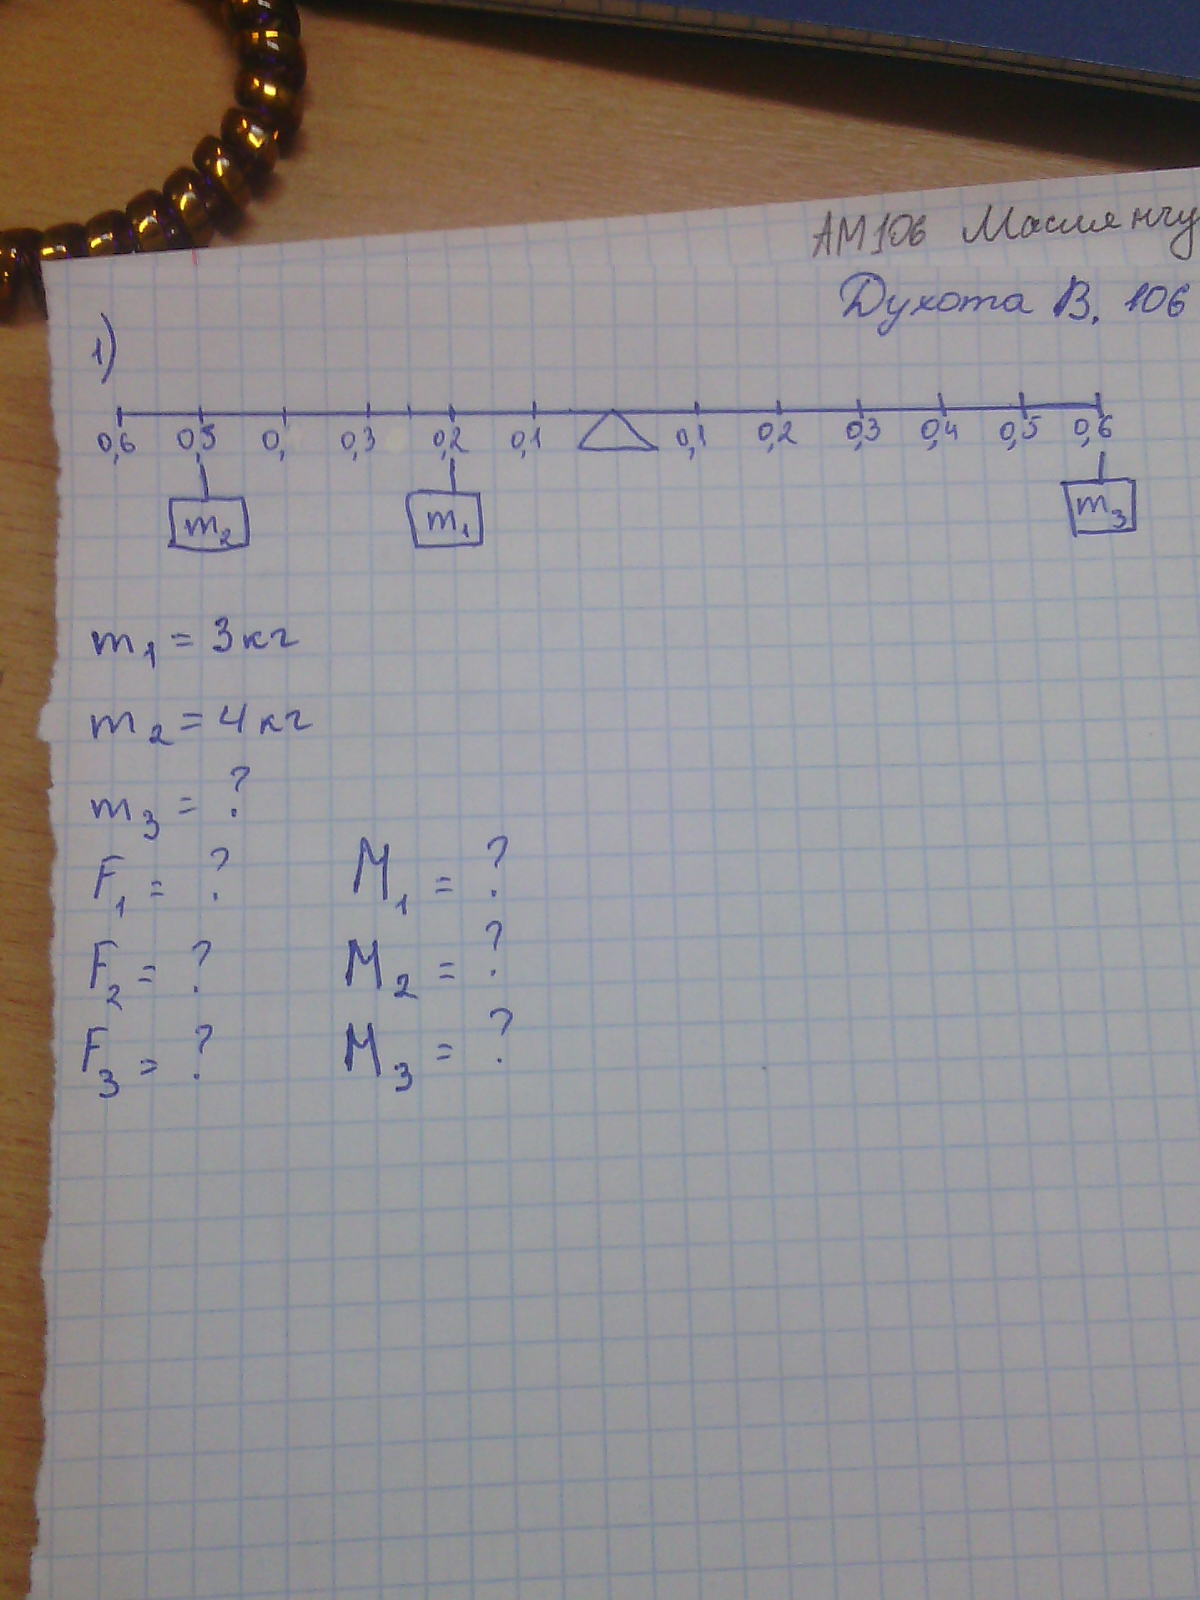 АМ106
Духота В. 106
1)
0,6 0,5 0, 0,3 0,2 0,1 0,1 0,2 0,3 0,4 0,5 0,6
m2 m1 m3
m1 = 3кг
m2 = 4кг
m3 = ?
F1 = ? M1 = ?
F2 = ? M2 = ?
F3 = ? M3 = ?